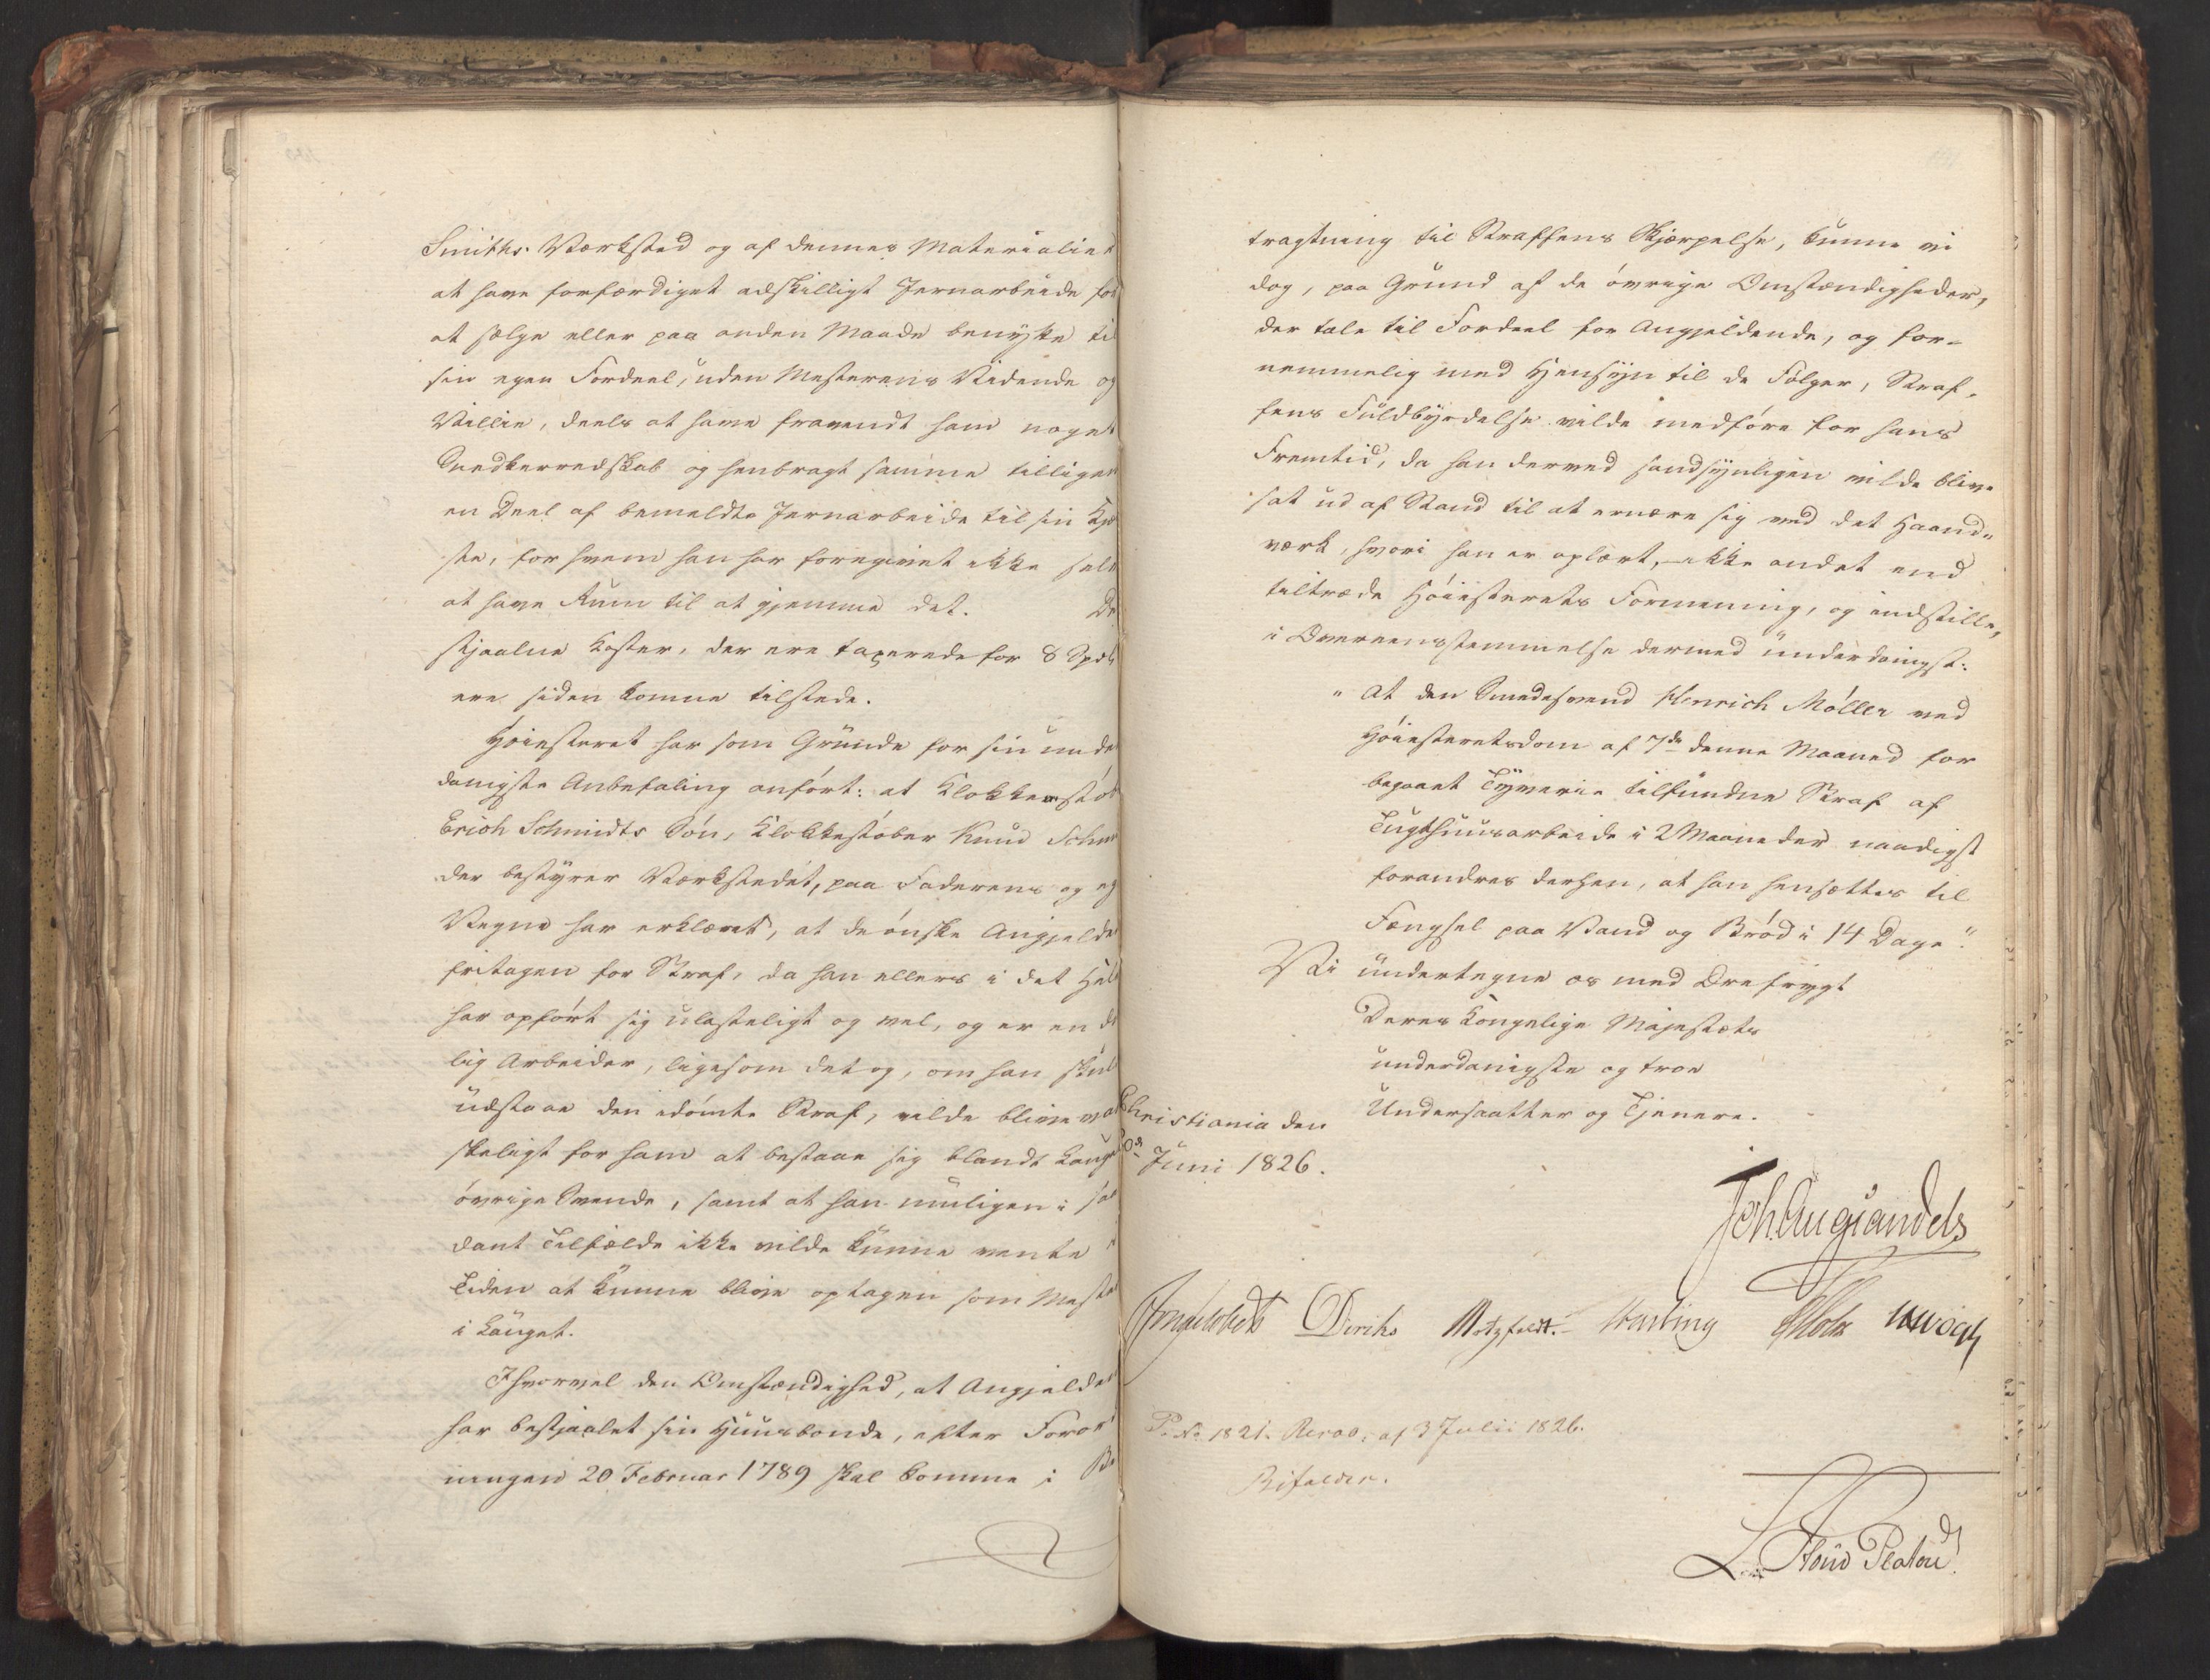 Smiths Værksted og af dennes Materialier
at have forfærdiget adskilligt Jernarbeide for
at sælge eller paa anden Maade benytte til
sin egen Fordeel, uden Mesterens Vidende og
Villie, deels at have fravendt ham noget
Snedkerredskab og henbragt samme tilligem
en Deel af bemeldte Jernarbeide til sin Kjæ
ste, for hvem han har foregivet ikke selv
at have Rum til at gjemme det. De
stjaalne Koster, der ere taxerede for 8 Spdlr
ere siden komne tilstede.
Høiesteret har som Grunde for sin under
danigste Anbefaling anført: at Klokkerstøb
Erich Schmidts Søn, Klokkestøber Knud Schm
der bestyrer Værkstedet, paa Faderens og eg
Vegne har erklæret, at de ønske Angjelde
fritagen for Straf, da han ellers i det Hele
har opført sig ulasteligt og vel, og er en d
lig Arbeider, ligesom det og, om han skul
udstaae den idømte Straf, vilde blive van
skeligt for ham at bestaae sig blandt Lauge
øvrige Svende, samt at han muligen i saa
dant Tilfælde ikke vilde kunne vente i
Tiden at kunne blive optagen som Mester
i Lauget.
Ihvorvel den Omstændighed, at Angjelde
har bestjaalet sin Huusbonde, efter Foror
ningen 20 Februar 1789 skal komme i Be
tragtning til Straffens Skjærpelse, kunne vi
dog, paa Grund af de øvrige Omstændigheder,
der tale til Fordeel for Angjeldende, og for-
nemmelig med Hensyn til de Følger, Straf-
fens Fuldbyrdelse vilde medføre for hans
Fremtid, da han derved sandsynligen vilde blive
sat ud af Stand til at ernære sig ved det Haand-
værk, hvori han er oplært, ikke andet end
tiltræde Høiesterets Formening, og indstille,
i Overeensstemmelse dermed underdanigst:
"at den Smedesvend Henrich Møller ved
Høiesteretsdom af 7de denne Maaned for
begaaet Tyverie tilfundne Straf af
Tugthuusarbeide i 2 Maaneder naadigst
forandres derhen, at han hensættes til
Fængsel paa Vand og Brød i 14 Dage".
Vi undertegne os med Ærefrygt
Deres Kongelige Majestæts
underdanigste og troe
Undersaatter og Tjenere.
Christiania den
Juni 1826.
Joh Aug Sandels
Diriks Motzfeldt. Holst
P. No 1821. Resol. af 3 Julii 1826.
Bifalder.
L. Stoud Platou